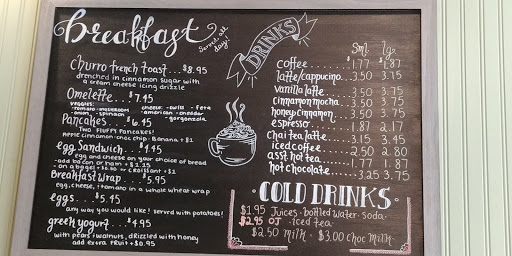 Breakfast
Served all day!
Churro french toast...$8.95
drenched in cinnamon sugar with
a cream cheese icing drizzle
Omelette...$7.45
veggies:
-tomato -mushroom
-onion, -spinach
cheese: -swiss -feta
-american -cheddar
-gorgonzola
Pancakes...$6.45
Two fluffy pancakes!
Apple cinnamon-choc chip-Banana + $1
egg Sandwich...$4.45
egg and cheese on your choice of bread
-add bacon or ham + $1.25
-on a bagel + $0.50 or croissant + $1
Breakfast wrap...5.95
egg, cheese, + tomato in a whole wheat wrap
eggs...$5.45
any way you would like! served with potatoes!
greek yogurt...$4.95
with pears + walnuts, drizzled with honey
add extra fruit + $0.95
DRINKS
Sml. lg.
Coffee $1.77 $1.87
latte/cappucino 3.50 3.75
vanilla latte 3.50 3.75
cinnamon mocha 3.50 3.75
honey cinnamon 3.50 3.75
espresso 1.87 2.17
Chai tea latte 3.15 3.45
iced coffee 2.50 2.80
asst. hot tea 1.77 1.87
hot chocolate 3.25 3.75
COLD DRINKS
$1.95 Juices · bottled water · soda
$2.95 OJ · iced tea
$2.50 milk · $3.00 choc milk